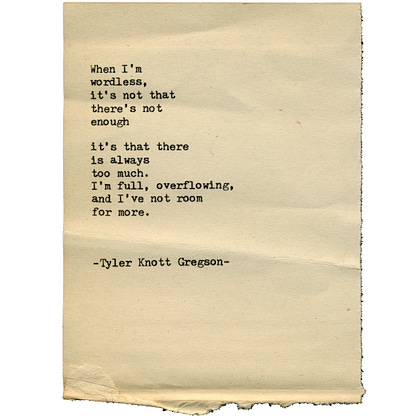 When I'm
wordless,
it's not that
there's not
enough
it's that there
is always
too much.
I'm full, overflowing,
and I've not room
for more.
-Tyler Knott Gregson-